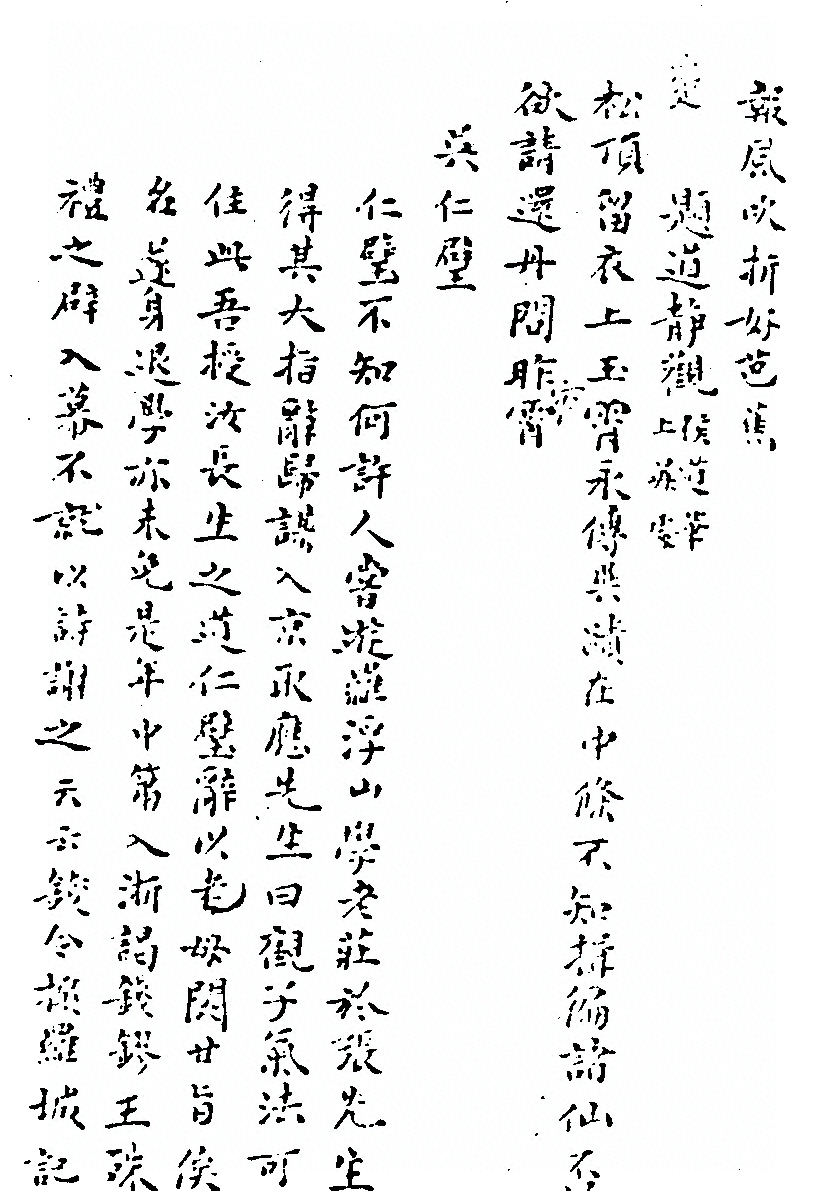 報風吹折好芭蕉
題道靜觀 侯道華上昇處
松頂留衣上玉霄永傳異蹟在中條不知採徧諸仙否
欲請還丹問昨宵
吳仁璧
仁璧不知何許人嘗遊羅浮山學老莊於張先生
得其大指辭歸謀入京取應先生曰觀子氣法可
住此吾授汝長生之道仁璧辭以老母闕甘旨俟
名遂身退學亦未免是年中第入浙謁錢鏐王殊
禮之辟入幕不就以詩謝之云云錢令撰羅城記